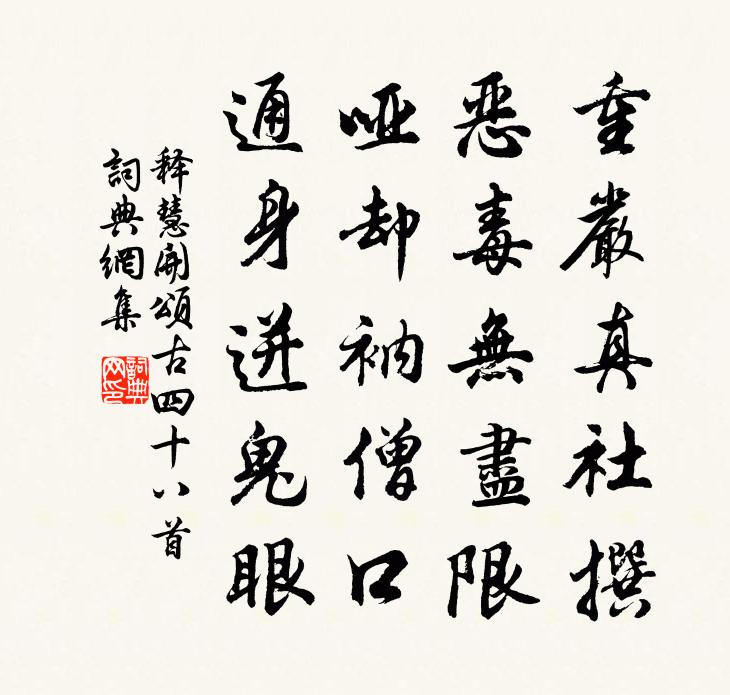 重嚴真社撰
惡毒無盡限
啞却衲僧口
通身迸鬼眼
釋慧開頌古四十八首
詞典網集
詞典网印